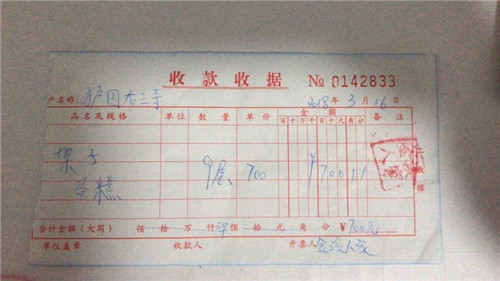 收款收据 № 0142833
户名称: 2018年3月16日
品名及规格 单位 数量 单价 金额 备注
百十万千百十元角分
架子 9层 700 ¥700
蛋糕
合计金额（大写） 佰 拾 万 仟 佰 拾 元 角 分 ¥700元
单位盖章 收款人 开票人